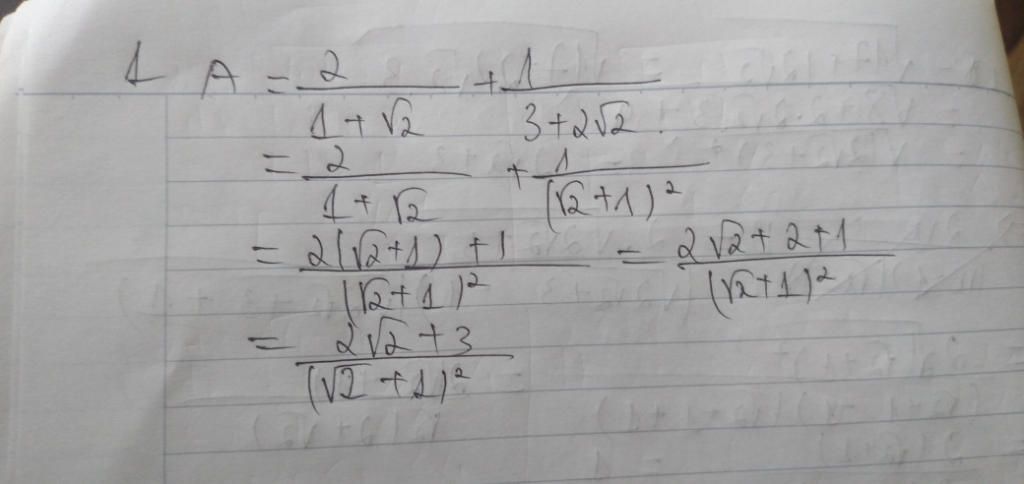 1 A = 2/(1+√2) + 1/(3+2√2).
= 2/(1+√2) + 1/(√2+1)²
= (2(√2+1)+1)/(√2+1)² = (2√2+2+1)/(√2+1)²
= (2√2+3)/(√2+1)²